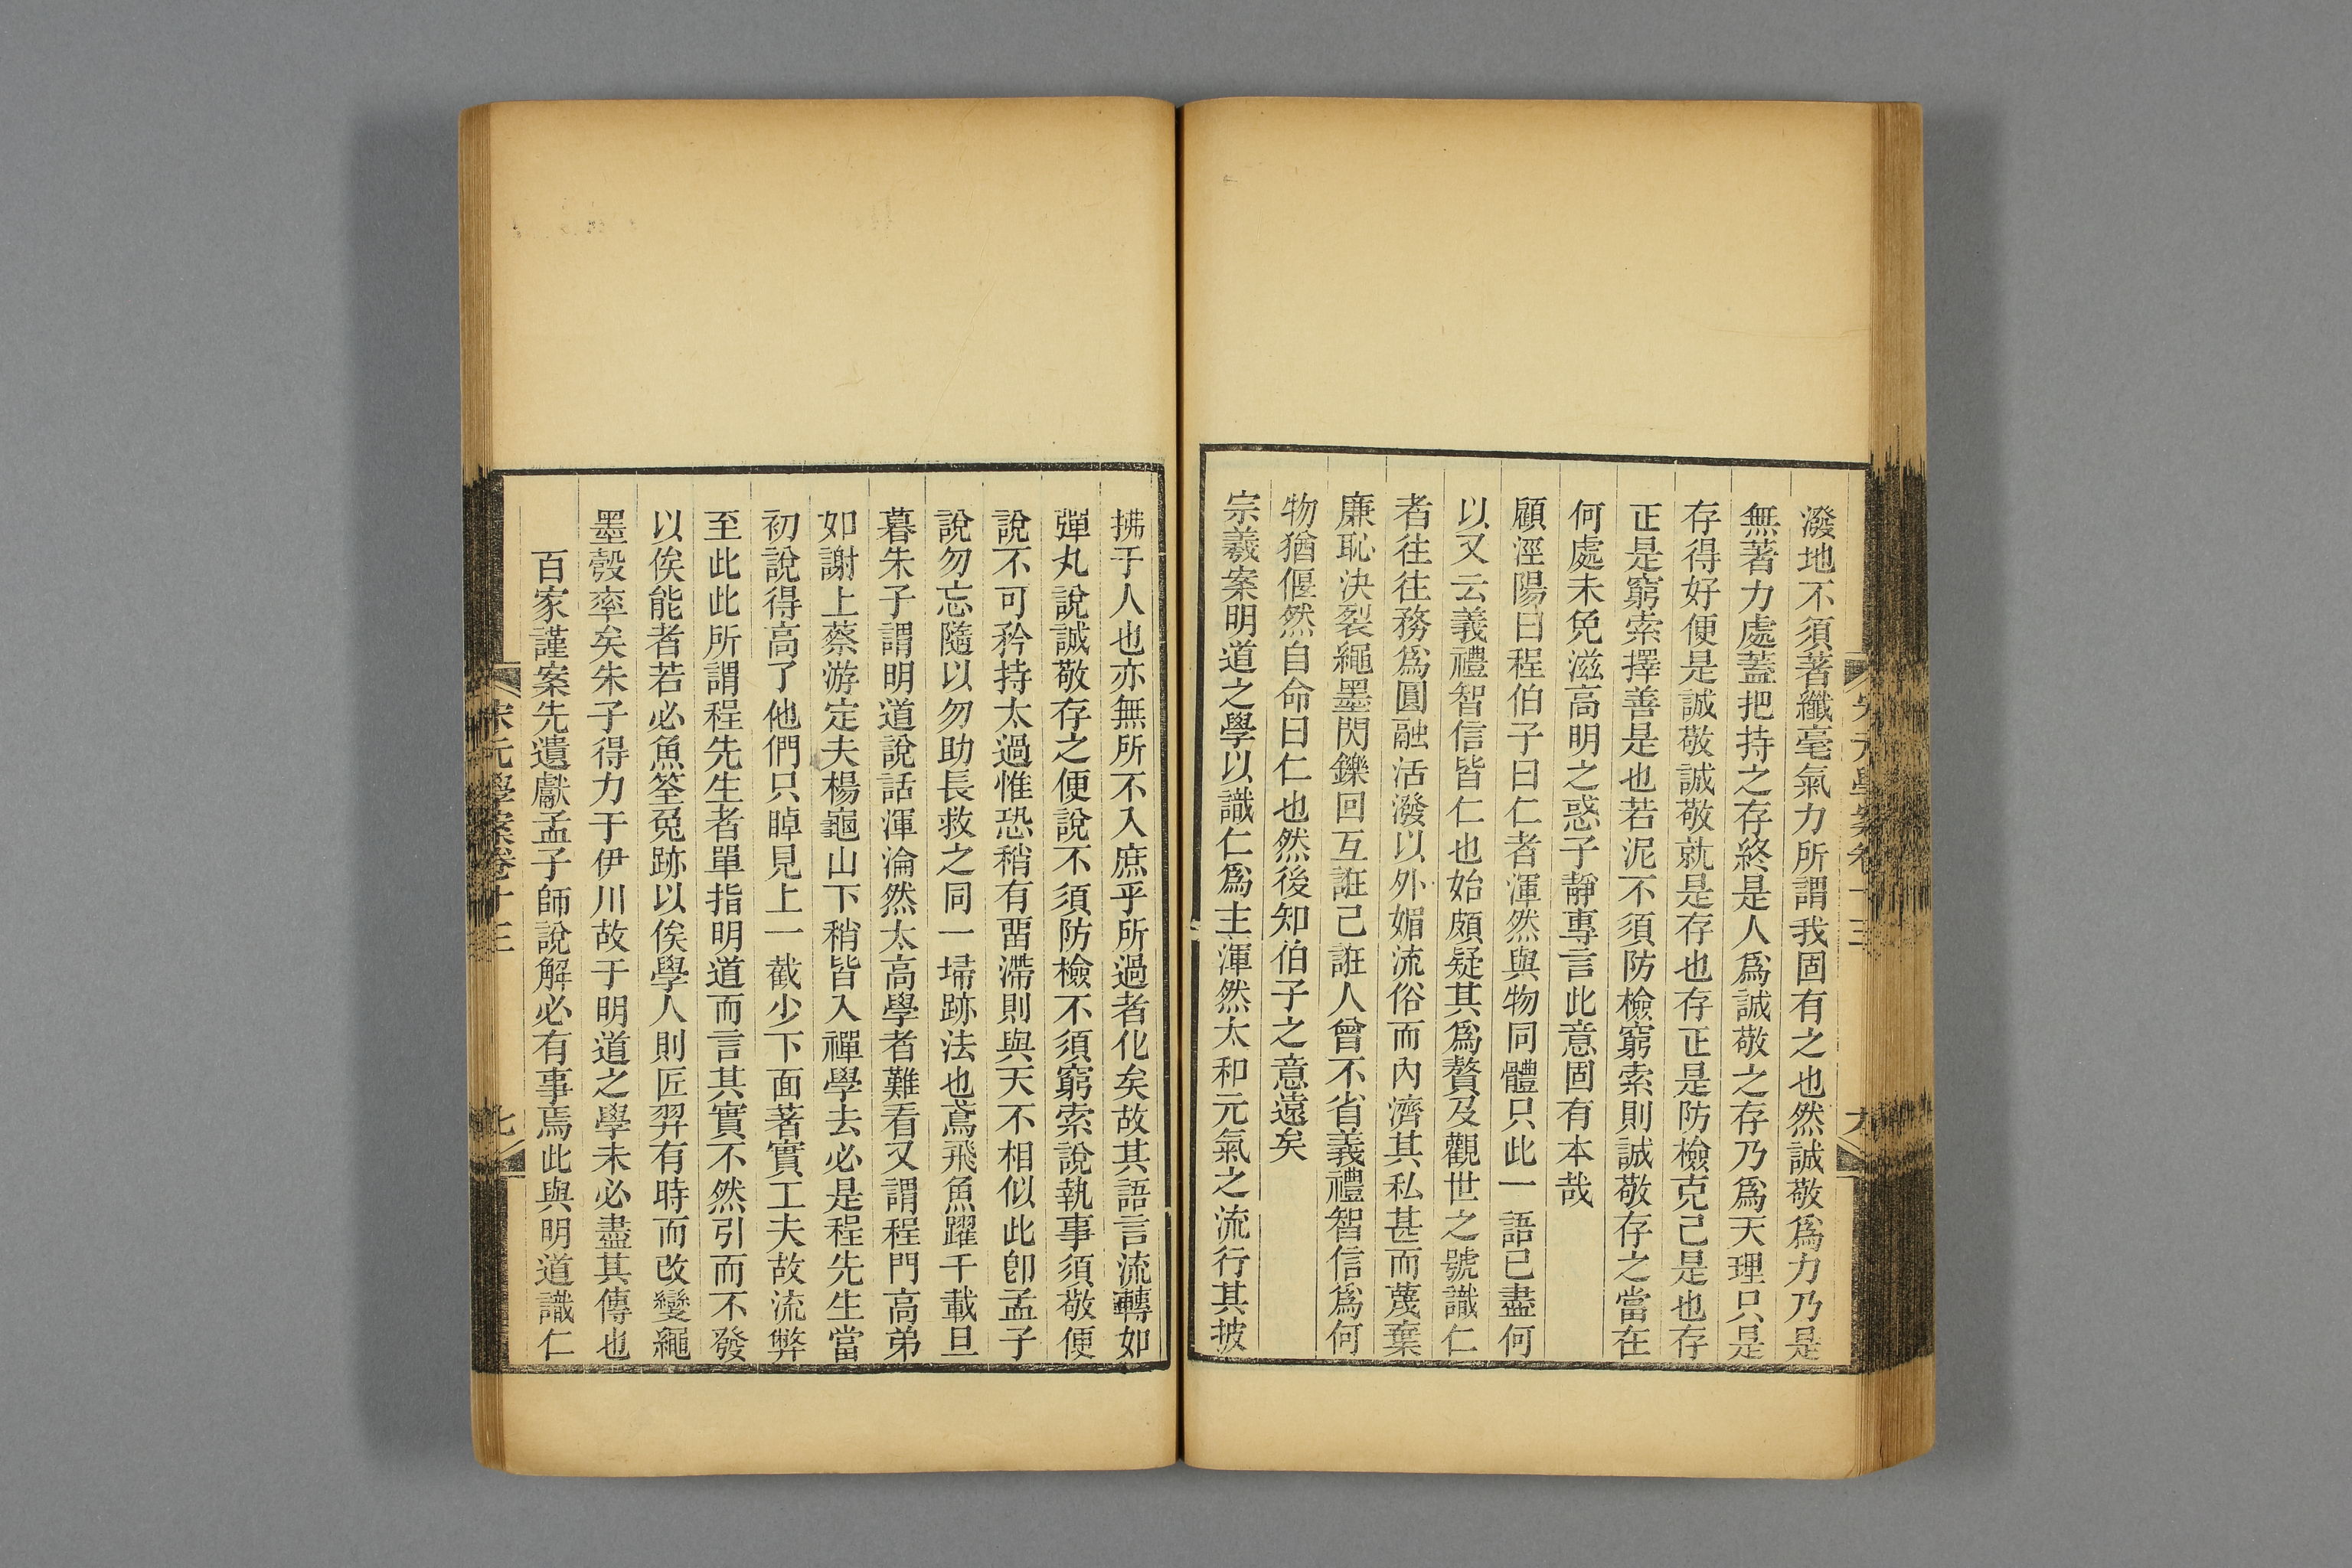 潑地不須著纖毫氣力所謂我固有之也然誠敬爲力乃是
無著力處蓋把持之存終是人爲誠敬之存乃爲天理只是
存得好便是誠敬誠敬就是存也存正是防檢克己是也存
正是窮索擇善是也若泥不須防檢窮索則誠敬存之當在
何處未免滋高明之惑子靜專言此意固有本哉
顧涇陽曰程伯子曰仁者渾然與物同體只此一語已盡何
以又云義禮智信皆仁也始頗疑其爲贅及觀世之號識仁
者往往務爲圓融活潑以外媚流俗而內濟其私甚而蔑棄
廉恥決裂繩墨閃鑠回互誑己誑人曾不省義禮智信爲何
物猶偃然自命曰仁也然後知伯子之意遠矣
宗羲案明道之學以識仁爲主渾然太和元氣之流行其披
拂于人也亦無所不入庶乎所過者化矣故其語言流轉如
彈丸說誠敬存之便說不須防檢不須窮索說執事須敬便
說不可矜持太過惟恐稍有畱滯則與天不相似此卽孟子
說勿忘隨以勿助長救之同一埽跡法也鳶飛魚躍千載旦
暮朱子謂明道說話渾淪然太高學者難看又謂程門高弟
如謝上蔡游定夫楊龜山下稍皆入禪學去必是程先生當
初說得高了他們只晫見上一截少下面著實工夫故流弊
至此此所謂程先生者單指明道而言其實不然引而不發
以俟能者若必魚筌兔跡以俟學人則匠羿有時而改變繩
墨彀率矣朱子得力于伊川故于明道之學未必盡其傳也
百家謹案先遺獻孟子師說解必有事焉此與明道識仁
宋元學案卷十三